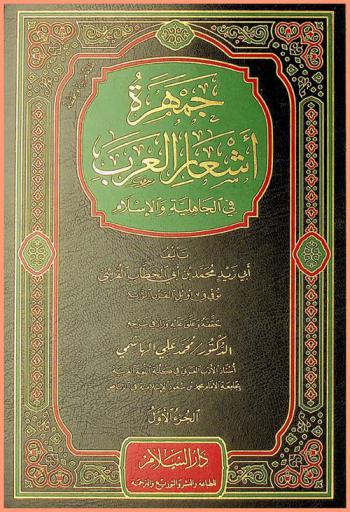 جمهرة
أشعار العرب
في الجاهلية والإسلام
تأليف
أبي زيد محمد بن أبي الخطاب القرشي
توفي في أوائل القرن الرابع
حققه وعلق عليه وزاد في شرحه
الدكتور/محمد علي الهاشمي
أستاذ الأدب العربي في كلية اللغة العربية
بجامعة الإمام محمد بن سعود الإسلامية في الرياض
الجزء الأول
دار السلام
للطباعة والنشر والتوزيع والترجمة